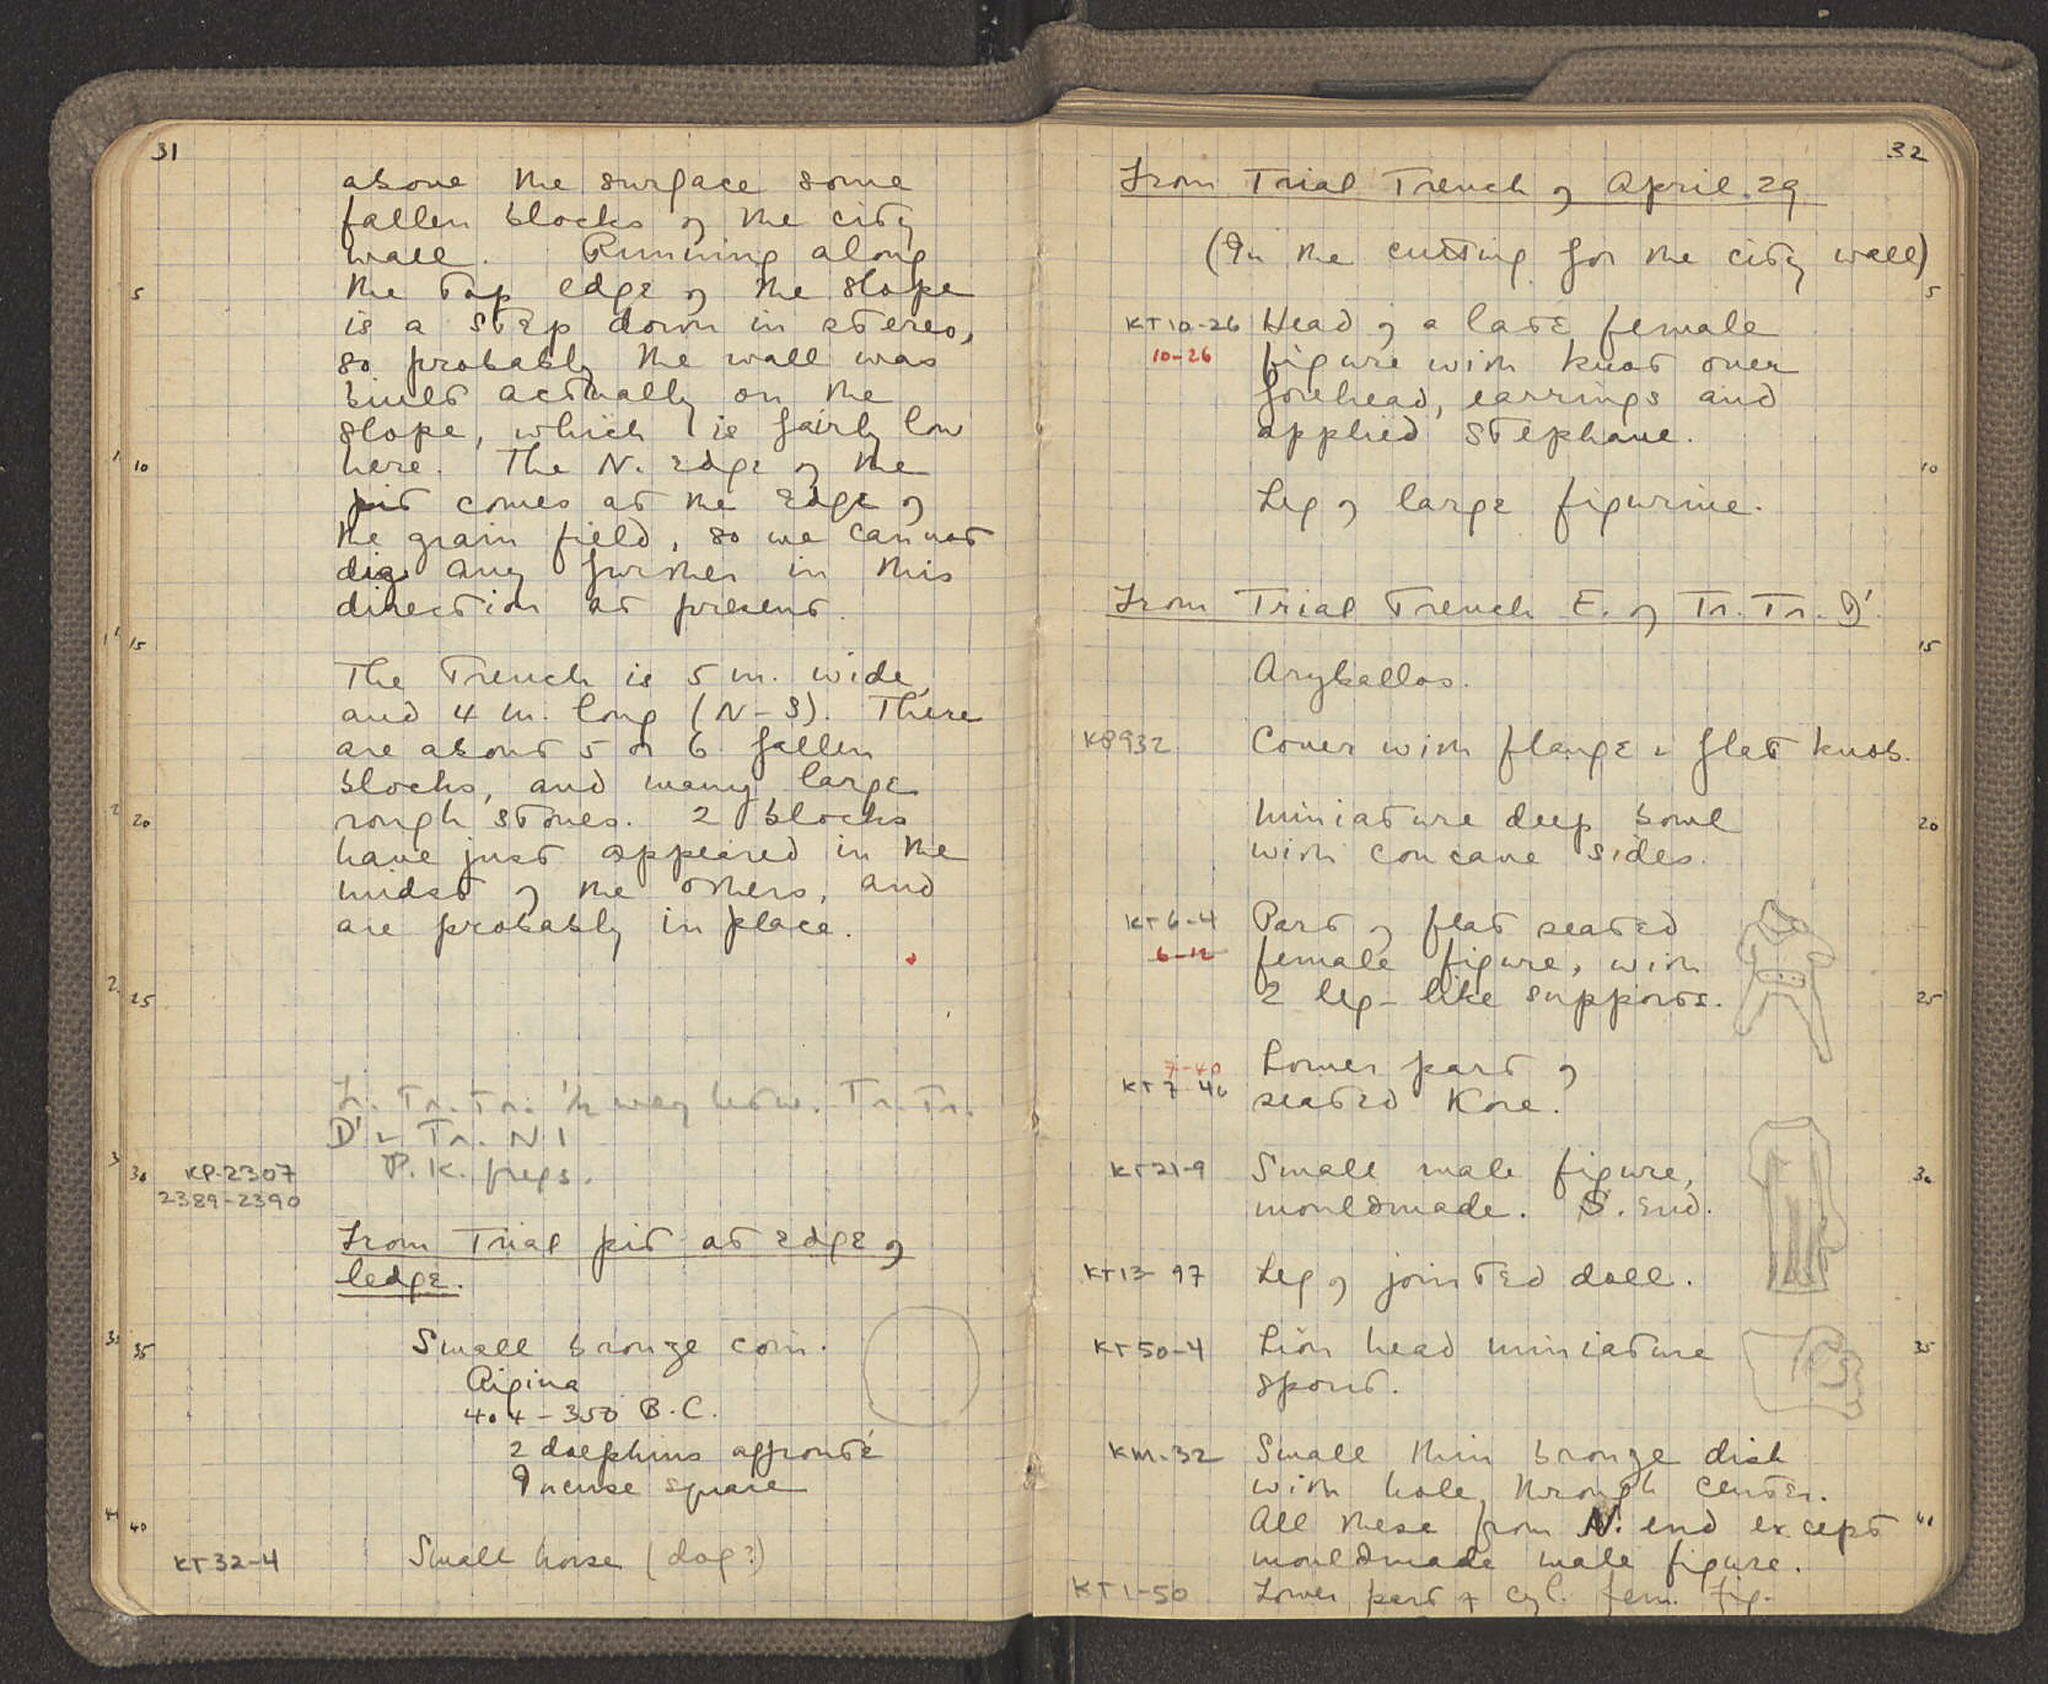 31
above the surface some
fallen blocks of the city
wall. Running along
5 the top edge of the slope
is a step down in stereo,
so probably the wall was
built actually on the
slope, which is fairly low
10 here. The N. edge of the
pit comes at the edge of
the grain field, so we cannot
dig any further in this
direction at present.
15
The trench is 5 m. wide
and 4 m. long (N-S). There
are about 5 or 6 fallen
blocks, and many large
20 rough stones. 2 blocks
have just appeared in the
midst of the others, and
are probably in place.
25
Fr. Tr. Tr. 1/2 way betw. Tr. Tr.
D' & Tr. N 1
30 KP-2307 P.K. frgs.
2389-2390
From Trial pit at edge of
ledge.
35 Small bronze coin.
Aigina
404-350 B.C.
2 dolphins affronté
Incuse square
40
KT32-4 Small horse (dog?)
32
From Trial Trench of April 29
(In the cutting for the city wall)
5
KT10-26 Head of a late female
10-26 figure with knot over
forehead, earrings and
applied stephane.
10
Leg of large figurine.
From Trial Trench E. of Tr. Tr. D'
15
Aryballos.
KP932 Cover with flange & flat knob.
Miniature deep bowl 20
with concave sides.
KT6-4 Part of flat seated
6-12 female figure, with
2 leg-like supports. 25
7-40 Lower part of
KT7-40 seated Kore.
KT21-9 Small male figure, 30
mouldmade. S. End.
KT13-97 Leg of jointed doll.
KT50-4 Lion head miniature 35
spout.
KM-32 Small thin bronze disk
with hole through center.
All these from N. end except 40
mouldmade male figure.
KT1-50 Lower part of cyl. fem. fig.